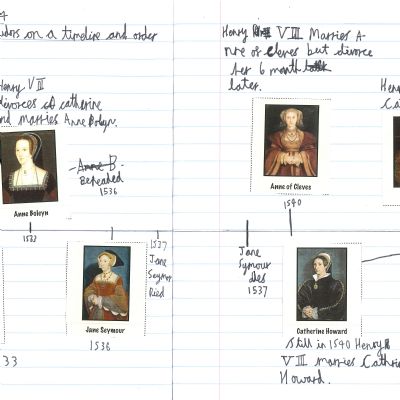 udors on a timeline and order
Henry VIII
divorces catherine
nd marries Anne Boleyn.
Anne Boleyn
1533
Anne B
Beheaded
1536
Jane Seymour
1536
1537
Jane
Seymour
Died
33
Henry VIII Marries A-
nne of Cleves but divorce
her 6 month
later.
Anne of Cleves
1540
Jane
Symour
dies
1537
Catherine Howard
Still in 1540 Henry
VIII marries Cathri
Howard.
Hen
Ca